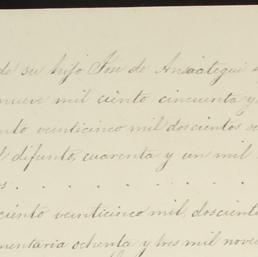 de su hijo José de Ansótegui
nueve mil ciento cincuenta y
nto veinticinco mil doscientos
l difunto, cuarenta y un mil
os . . . . . . . . .
ciento veinticinco mil, doscient
mentaria ochenta y tres mil nove